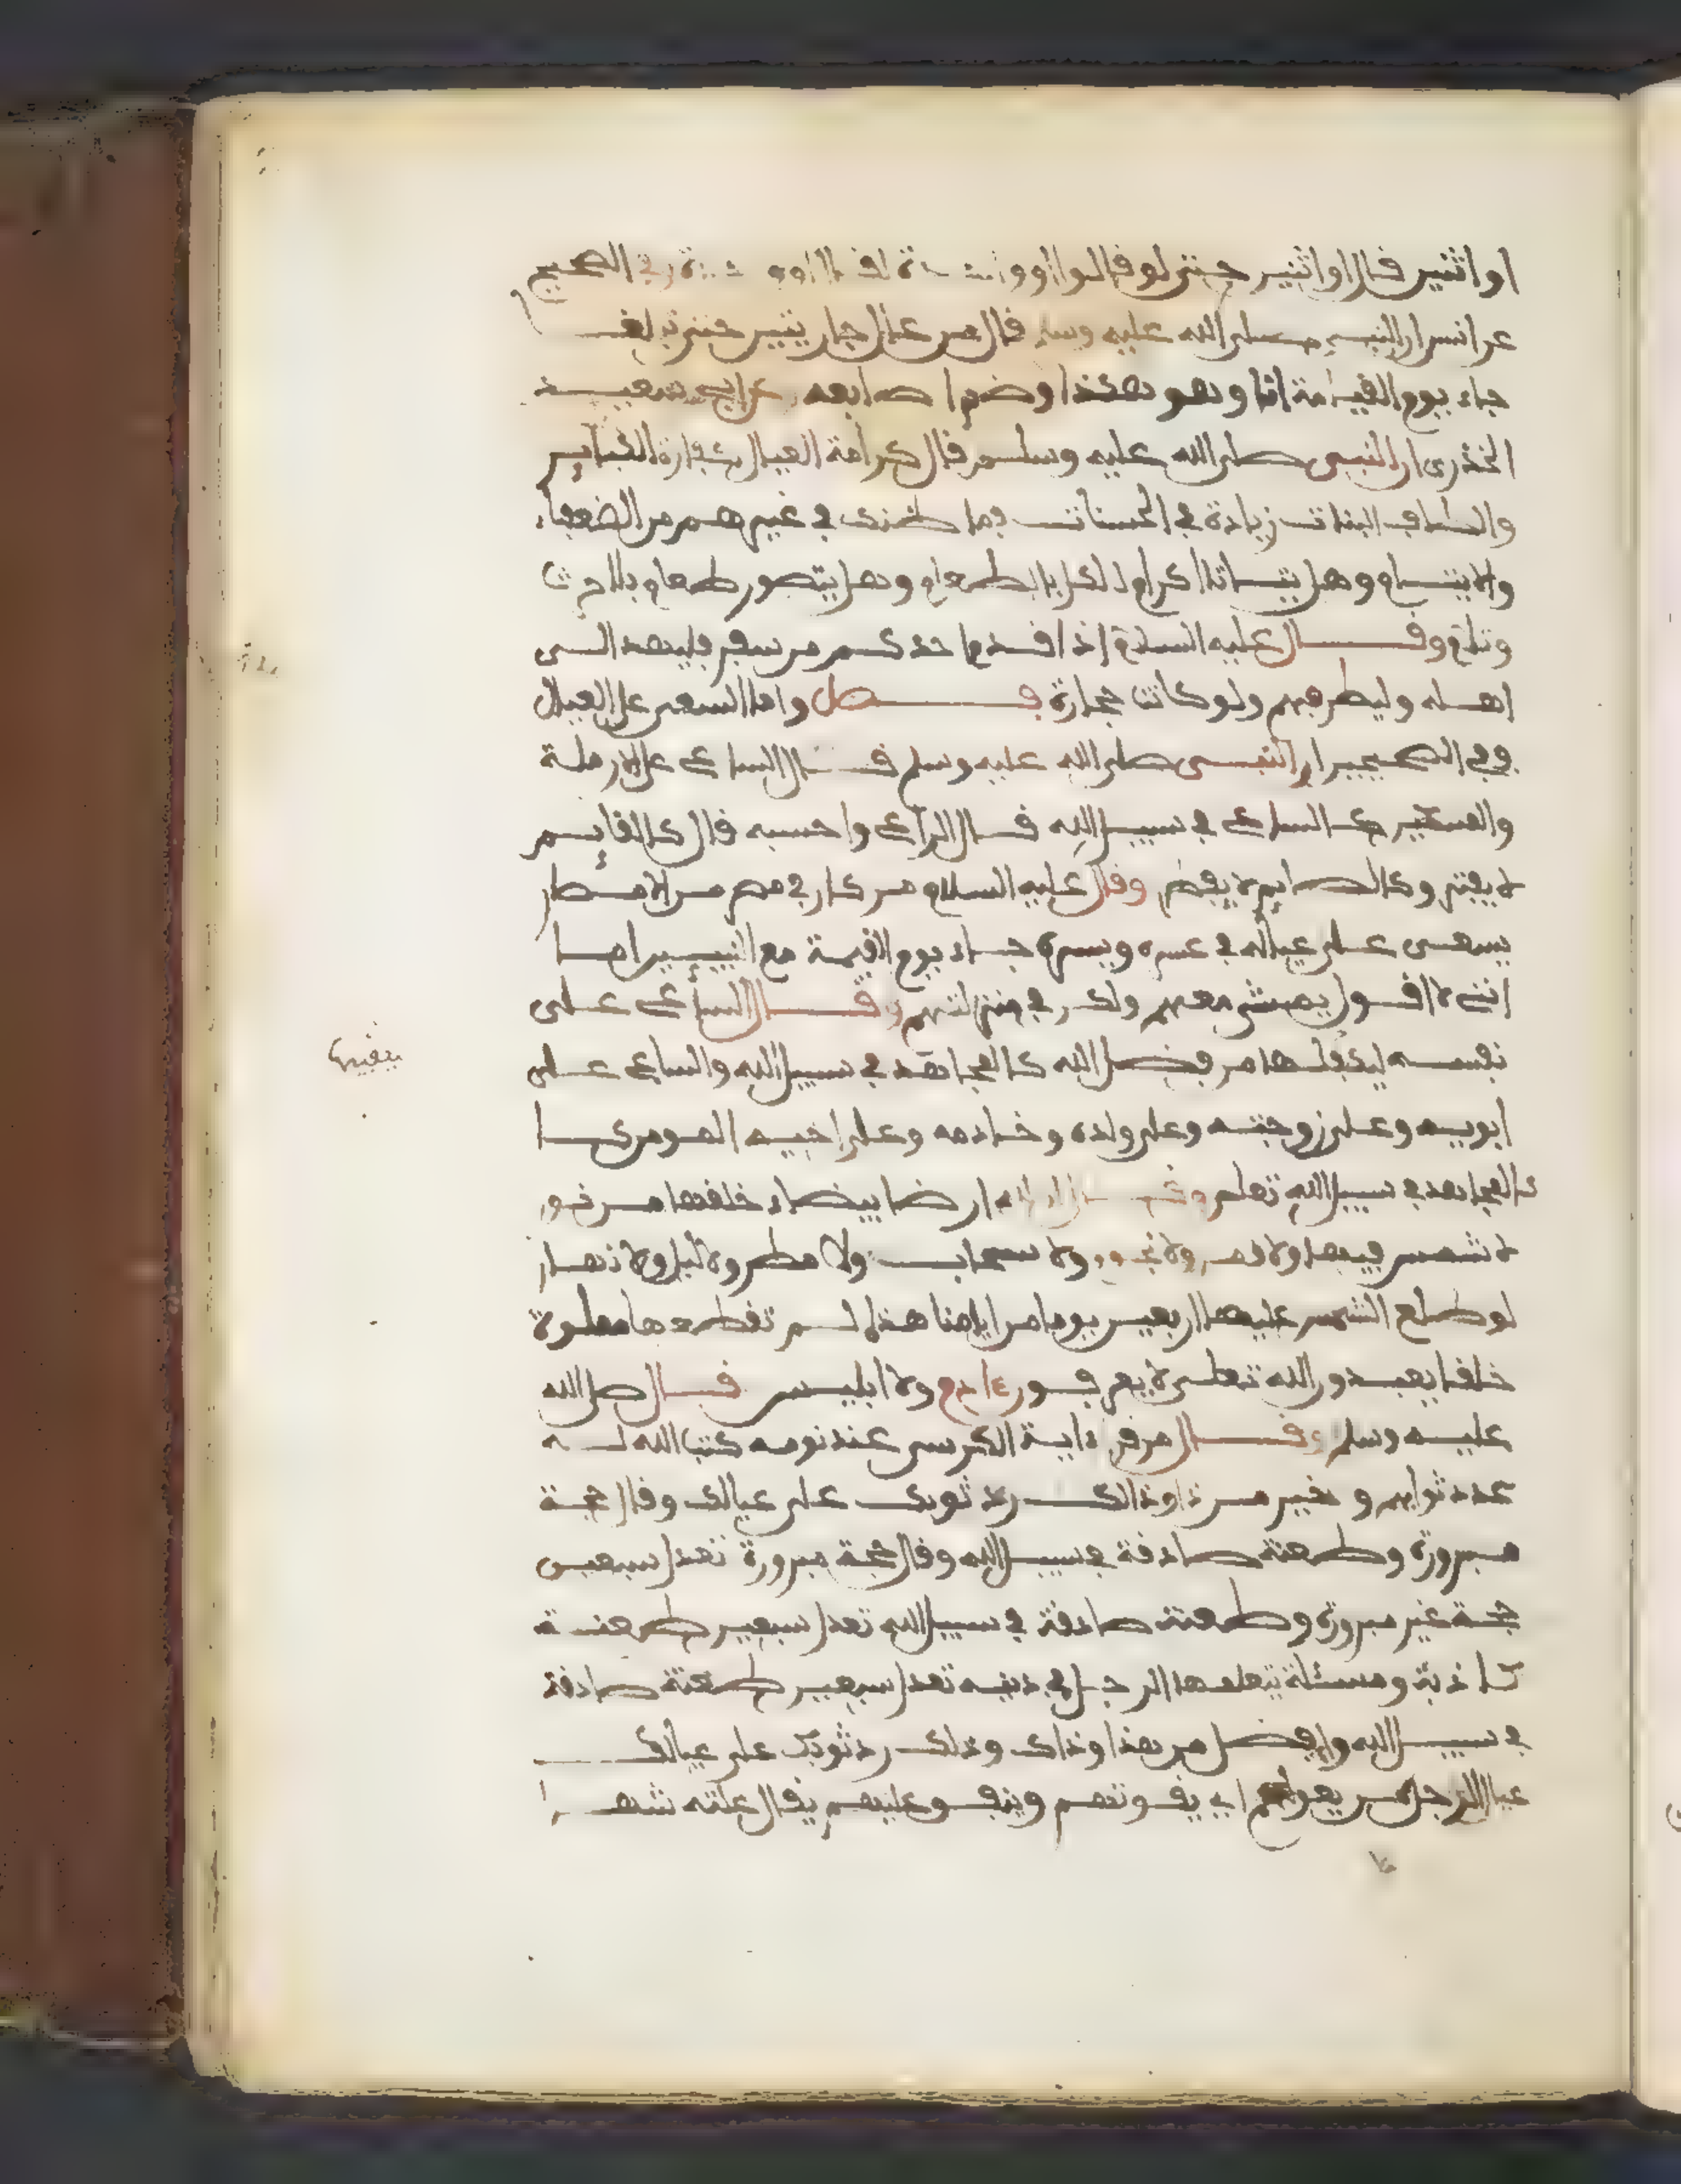 او اثنين قال او اثنين حتى لو قالوا او واحدة لقال او واحدة وفي الصحيح
عن انس ان النبي صلى الله عليه وسلم قال من عال جاريتين حتى تبلغا
جاء يوم القيامة انا وهو هكذا وضم اصابعه عن ابي سعيد
الخذري ان النبي صلى الله عليه وسلم قال كرامة العيال كفارة الكبائر
والطاف البنات زيادة في الحسنات فما ظنك في غيرهم من الضعفاء
والايتام وهل يتاتا اكرام لاكل بالطعام وهل يتصور طعام بلا حرث
وتلاع وقال عليه السلام إذا قدم احدكم من سفر فليهد الى
اهله وليطرفهم ولو كانت حجارة فصل واما السعي على العيال
ففي الصحيحين ان النبي صلى الله عليه وسلم قال الساعي على الارملة
والمسكين كالساعي في سبيل الله قال الراعي واحسبه قال كالقايم
لا يفتر وكالصايم لا يفطر وقال عليه السلام من كان في مصر من الامصار
يسعى على عياله في عسره ويسره جاء يوم القيمة مع النبيين اما
اني لا اقول يمشي معهم ولكن في منزلتهم وقال الساعي على
نفسه ليكفلها من فضل الله كالمجاهد في سبيل الله والساعي على
ابويه وعلى زوجته وعلى ولده وخادمه وعلى اخيه المومن كا
كالمجاهد في سبيل الله تعلى وقال ان لله ارضا بيضاء خلقها من نور
لا شمس فيها ولا قمر ولا نجوم ولا سحاب ولا مطر ولا ليل ولا نهار
لو طلع الشمس عليها اربعين يوما من ايامنا هذا لم تقطعها مملوة
خلقا يعبدون الله تعلى لا يعرفون ءادم ولا ابليس قال صلى الله
عليه وسلم وقال من قرا ءاية الكرسي عند نومه كتب الله له
عدد ثوابهم وخير من ذا وذالك رد ثوبك على عيالك وقال حجة
مبرورة وطعنة صادقة في سبيل الله وقال حجة مبرورة تعدل سبعين
حجة غير مبرورة وطعنة صادقة في سبيل الله تعدل سبعين طعنة
كاذبة ومسئلة يتعلمها الرجل في دينه تعدل سبعين طعنة صادقة
في سبيل الله وافضل من هذا وذاك وذلك رد ثوبك على عيالك
عيال الرجل من يعولهم اي يقوتهم وينفق عليهم يقال علته شهرا